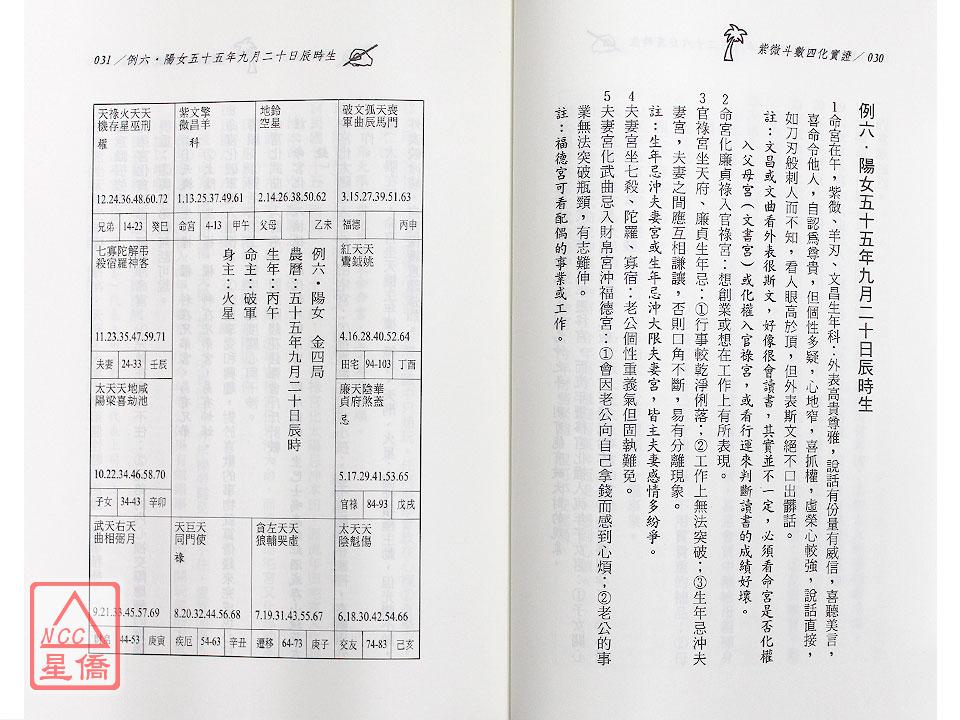 紫微斗數四化實證／030
例六．陽女五十五年九月二十日辰時生
1命宮在午，紫微、羊刃、文昌生年科：外表高貴尊雅，說話有份量有威信，喜聽美言，
喜命令他人，自認為尊貴，但個性多疑，心地窄，喜抓權，虛榮心較強，說話直接，
如刀刃般刺人而不知，看人眼高於頂，但外表斯文絕不口出髒話。
註：文昌或文曲看外表很斯文，好像很會讀書，其實並不一定，必須看命宮是否化權
入父母宮（文書宮）或化權入官祿宮，或看行運來判斷讀書的成績好壞。
2命宮化廉貞祿入官祿宮：想創業或想在工作上有所表現。
3官祿宮坐天府、廉貞生年忌：①行事較乾淨俐落；②工作上無法突破；③生年忌沖夫
妻宮，夫妻之間應互相謙讓，否則口角不斷，易有分離現象。
註：生年忌沖夫妻宮或生年忌沖大限夫妻宮，皆主夫妻感情多紛爭。
4夫妻宮坐七殺、陀羅、寡宿：老公個性重義氣但固執難免。
5夫妻宮化武曲忌入財帛宮沖福德宮：①會因老公向自己拿錢而感到心煩；②老公的事
業無法突破瓶頸，有志難伸。
註：福德宮可看配偶的事業或工作。
031／例六．陽女五十五年九月二十日辰時生
天祿火天天
機存星巫刑
權
12.24.36.48.60.72
兄弟 14-23 癸巳
紫文擎
微昌羊
科
1.13.25.37.49.61
命宮 4-13 甲午
地鈴
空星
2.14.26.38.50.62
父母 乙未
破文孤天喪
軍曲辰馬門
3.15.27.39.51.63
福德 丙申
七寡陀解弔
殺宿羅神客
11.23.35.47.59.71
夫妻 24-33 壬辰
例六．陽女　金四局
農曆：五十五年九月二十日辰時
生年：丙午
命主：破軍
身主：火星
紅天天
鸞鉞姚
4.16.28.40.52.64
田宅 94-103 丁酉
太天天地咸
陽梁喜劫池
10.22.34.46.58.70
子女 34-43 辛卯
廉天陰華
貞府煞蓋
忌
5.17.29.41.53.65
官祿 84-93 戊戌
武天右天
曲相弼月
9.21.33.45.57.69
44-53 庚寅
天巨天
同門使
祿
8.20.32.44.56.68
疾厄 54-63 辛丑
貪左天天
狼輔哭虛
7.19.31.43.55.67
遷移 64-73 庚子
太天天
陰魁傷
6.18.30.42.54.66
交友 74-83 己亥
NCC
星僑